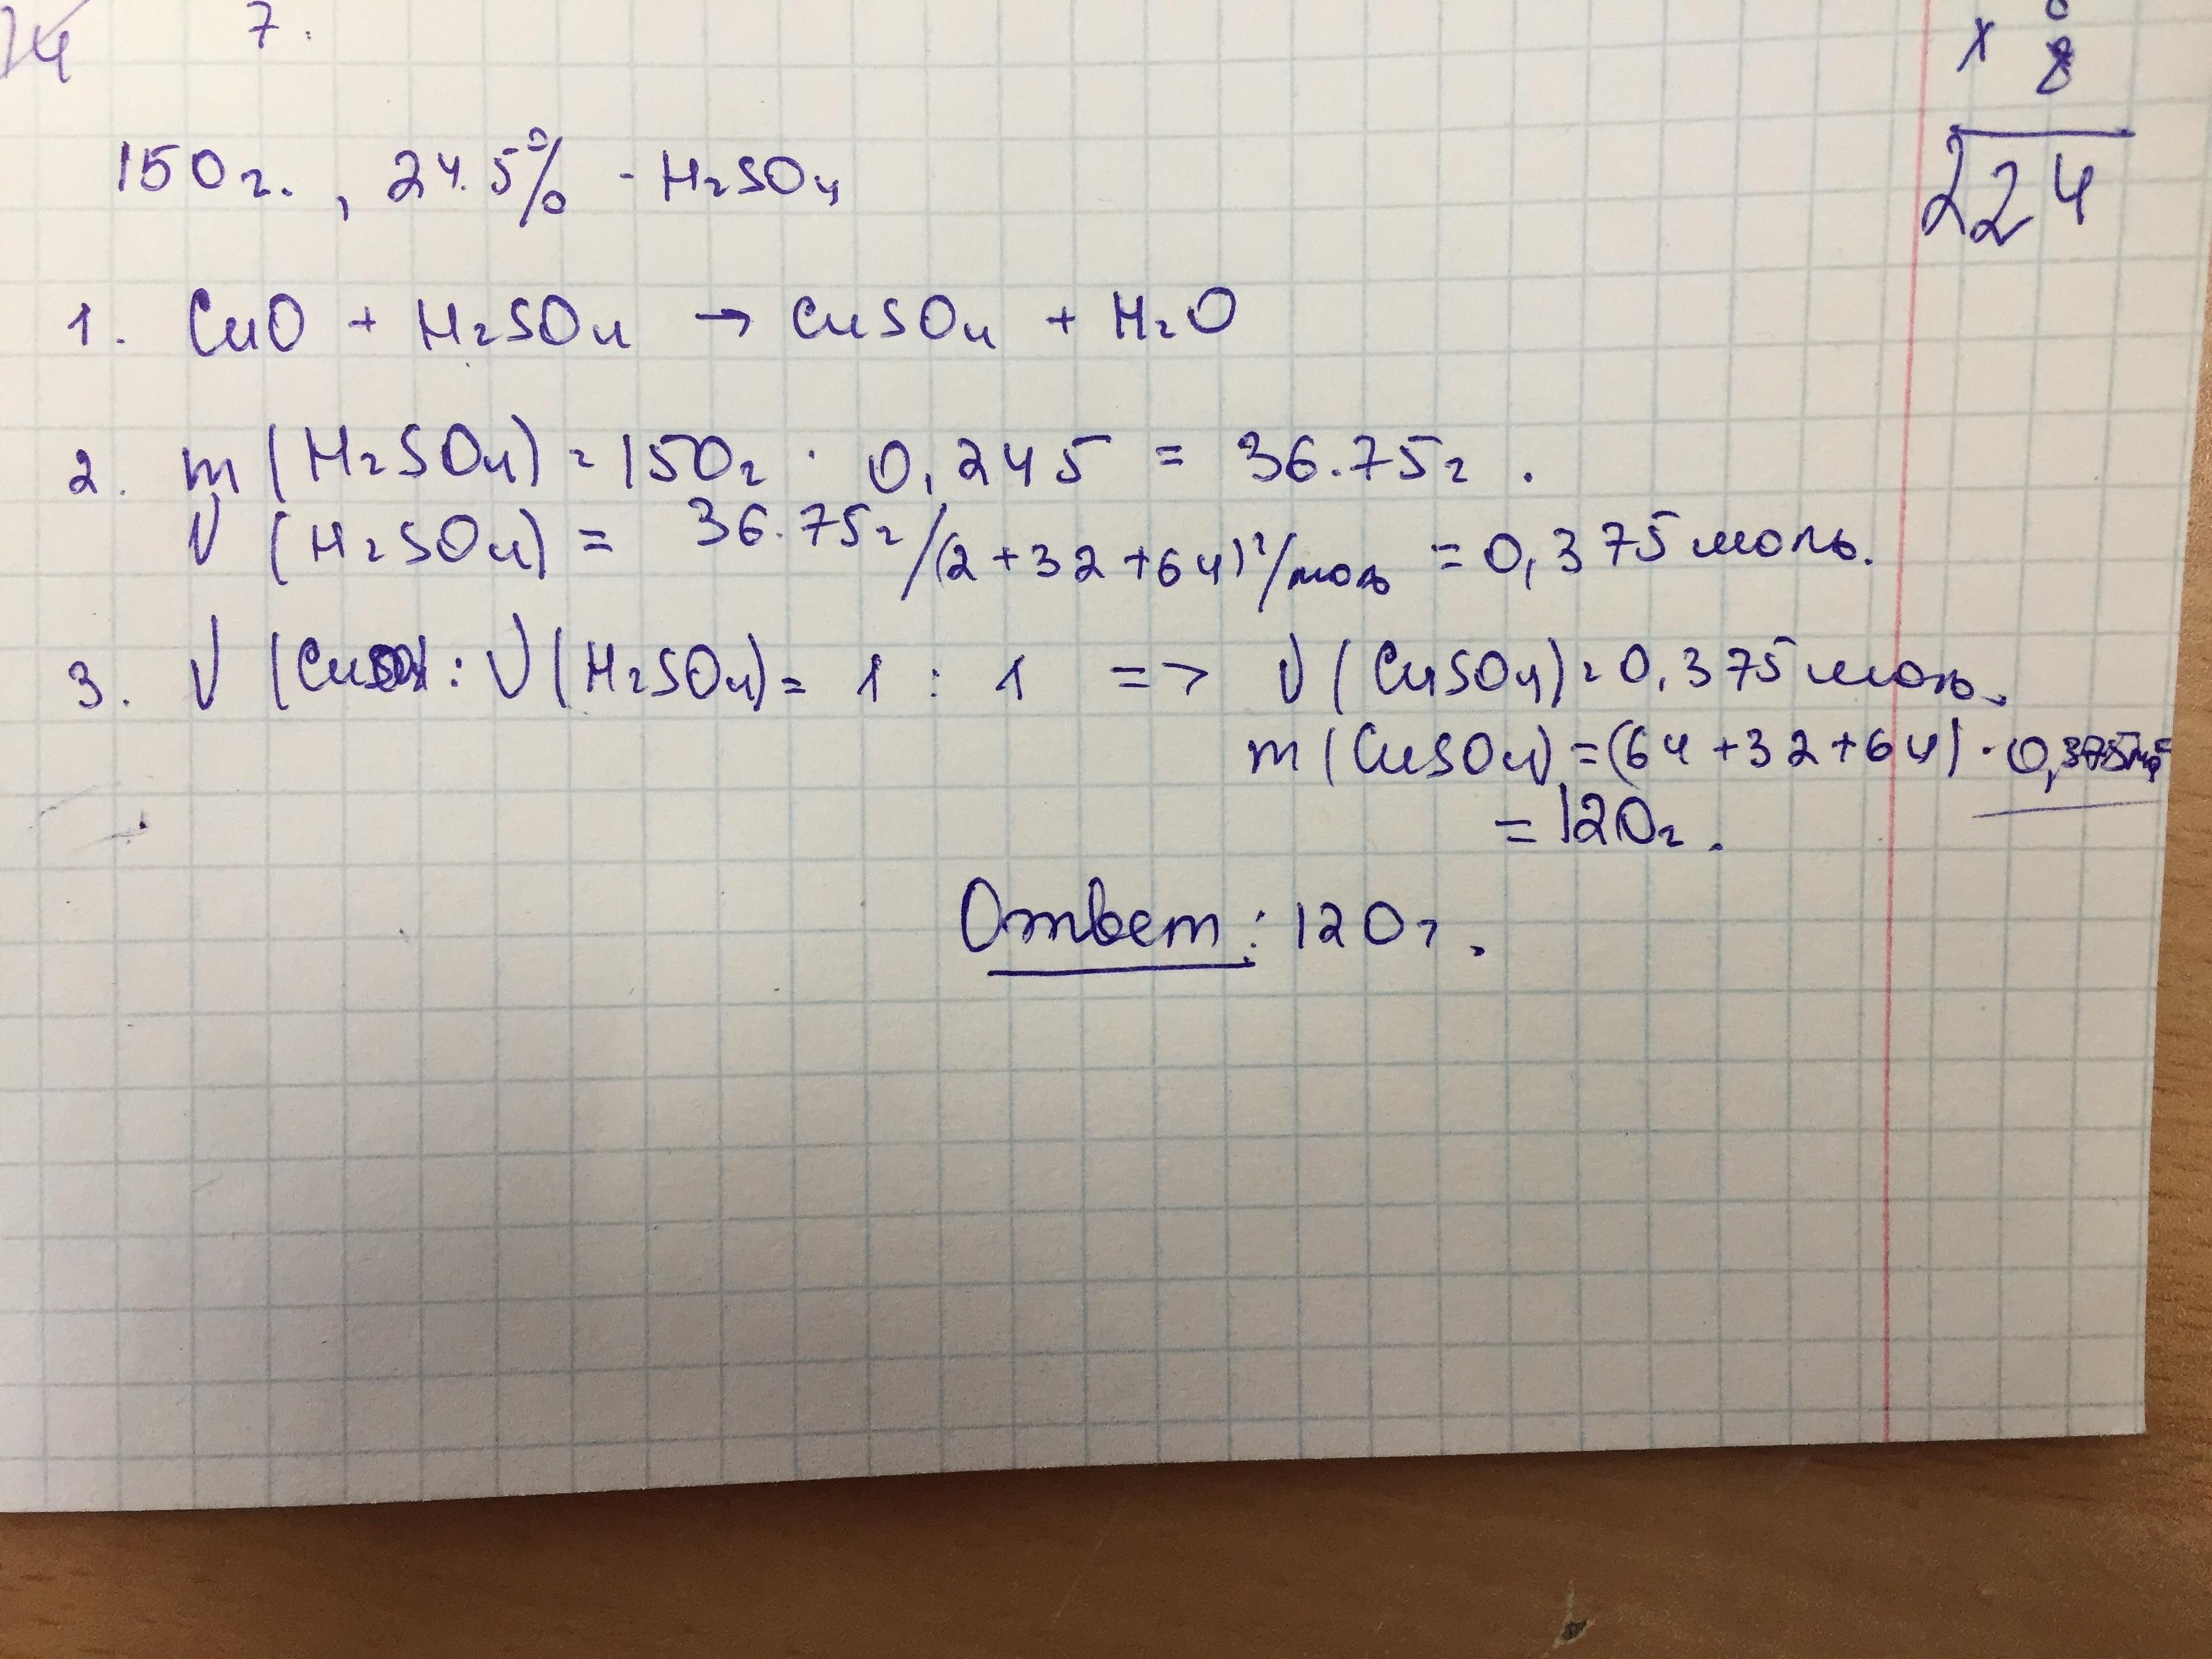 24 7.
x 8
224
150г. , 24.5% - H₂SO₄
1. CuO + H₂SO₄ → CuSO₄ + H₂O
2. m(H₂SO₄) = 150г · 0,245 = 36.75г .
ν(H₂SO₄) = 36.75г/(2+32+64)г/моль = 0,375 моль.
3. : ν(H₂SO₄) = 1 : 1 => ν(CuSO₄) = 0,375 моль.
m(CuSO₄) = (64+32+64) · 0,375
= 120г.
Ответ: 120г.